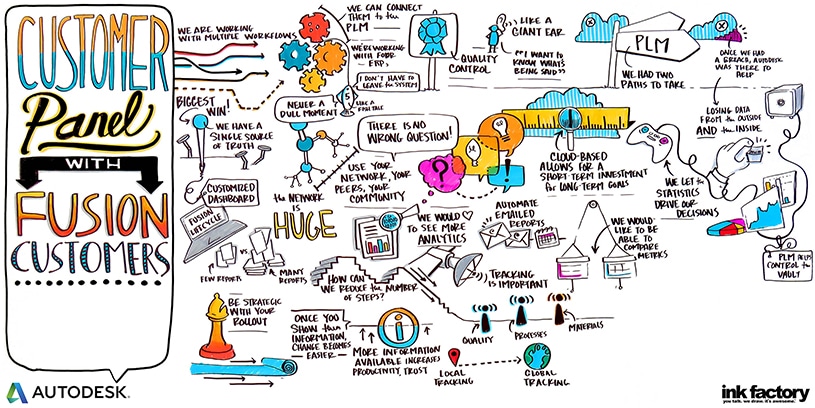 CUSTOMER
Panel
WITH
FUSION
CUSTOMERS
WE ARE WORKING
WITH MULTIPLE WORKFLOWS
WE CAN CONNECT
THEM to the
PLM
WE'RE WORKING
WITH FOUR
ERPs
I DON'T HAVE TO
LEAVE the SYSTEM
QUALITY
CONTROL
LIKE A
GIANT EAR
"I WANT TO
KNOW WHAT'S
BEING SAID"
PLM
WE HAD TWO
PATHS TO TAKE
ONCE WE HAD
A BREACH, AUTODESK
WAS THERE TO
HELP
LOSING DATA
FROM the OUTSIDE
AND the INSIDE
BIGGEST
WIN!
WE HAVE A
SINGLE SOURCE
OF TRUTH
NEVER A
DULL MOMENT
LIKE A
THERE IS NO
WRONG QUESTION!
USE YOUR
NETWORK, YOUR
PEERS, YOUR
COMMUNITY
the NETWORK
IS
HUGE
CLOUD-BASED
ALLOWS FOR A
SHORT TERM INVESTMENT
for LONG-TERM GOALS
WE LET the
STATISTICS
DRIVE OUR
DECISIONS
CUSTOMIZED
DASHBOARD
FUSION
LIFECYCLE
FEW REPORTS
VS.
A MANY
REPORTS
WE WOULD
TO SEE MORE
ANALYTICS
AUTOMATE
EMAILED
REPORTS
WE WOULD
LIKE TO BE
ABLE TO
COMPARE
METRICS
PLM HELPS
CONTROL the
VAULT
HOW CAN
WE REDUCE the NUMBER
OF STEPS?
TRACKING
IS IMPORTANT
QUALITY
PROCESSES
MATERIALS
BE STRATEGIC
WITH YOUR
ROLLOUT
ONCE YOU
SHOW them
INFORMATION,
CHANGE BECOMES
EASIER
i
MORE INFORMATION
AVAILABLE INCREASES
PRODUCTIVITY, TRUST
LOCAL
TRACKING
GLOBAL
TRACKING
AUTODESK.
ink factory
you talk. we draw. it's awesome.